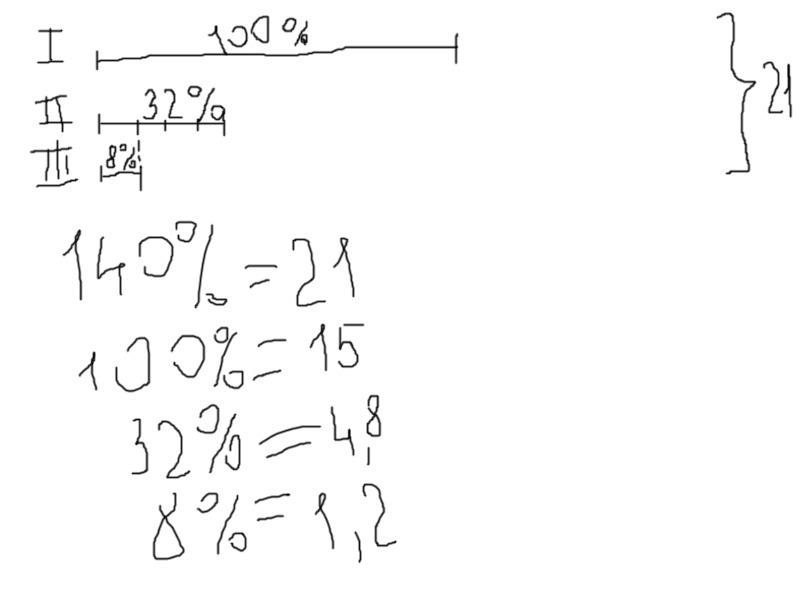 I 100%
II 32%
21
III 8%
140% = 21
100% = 15
32% = 4,8
8% = 1,2